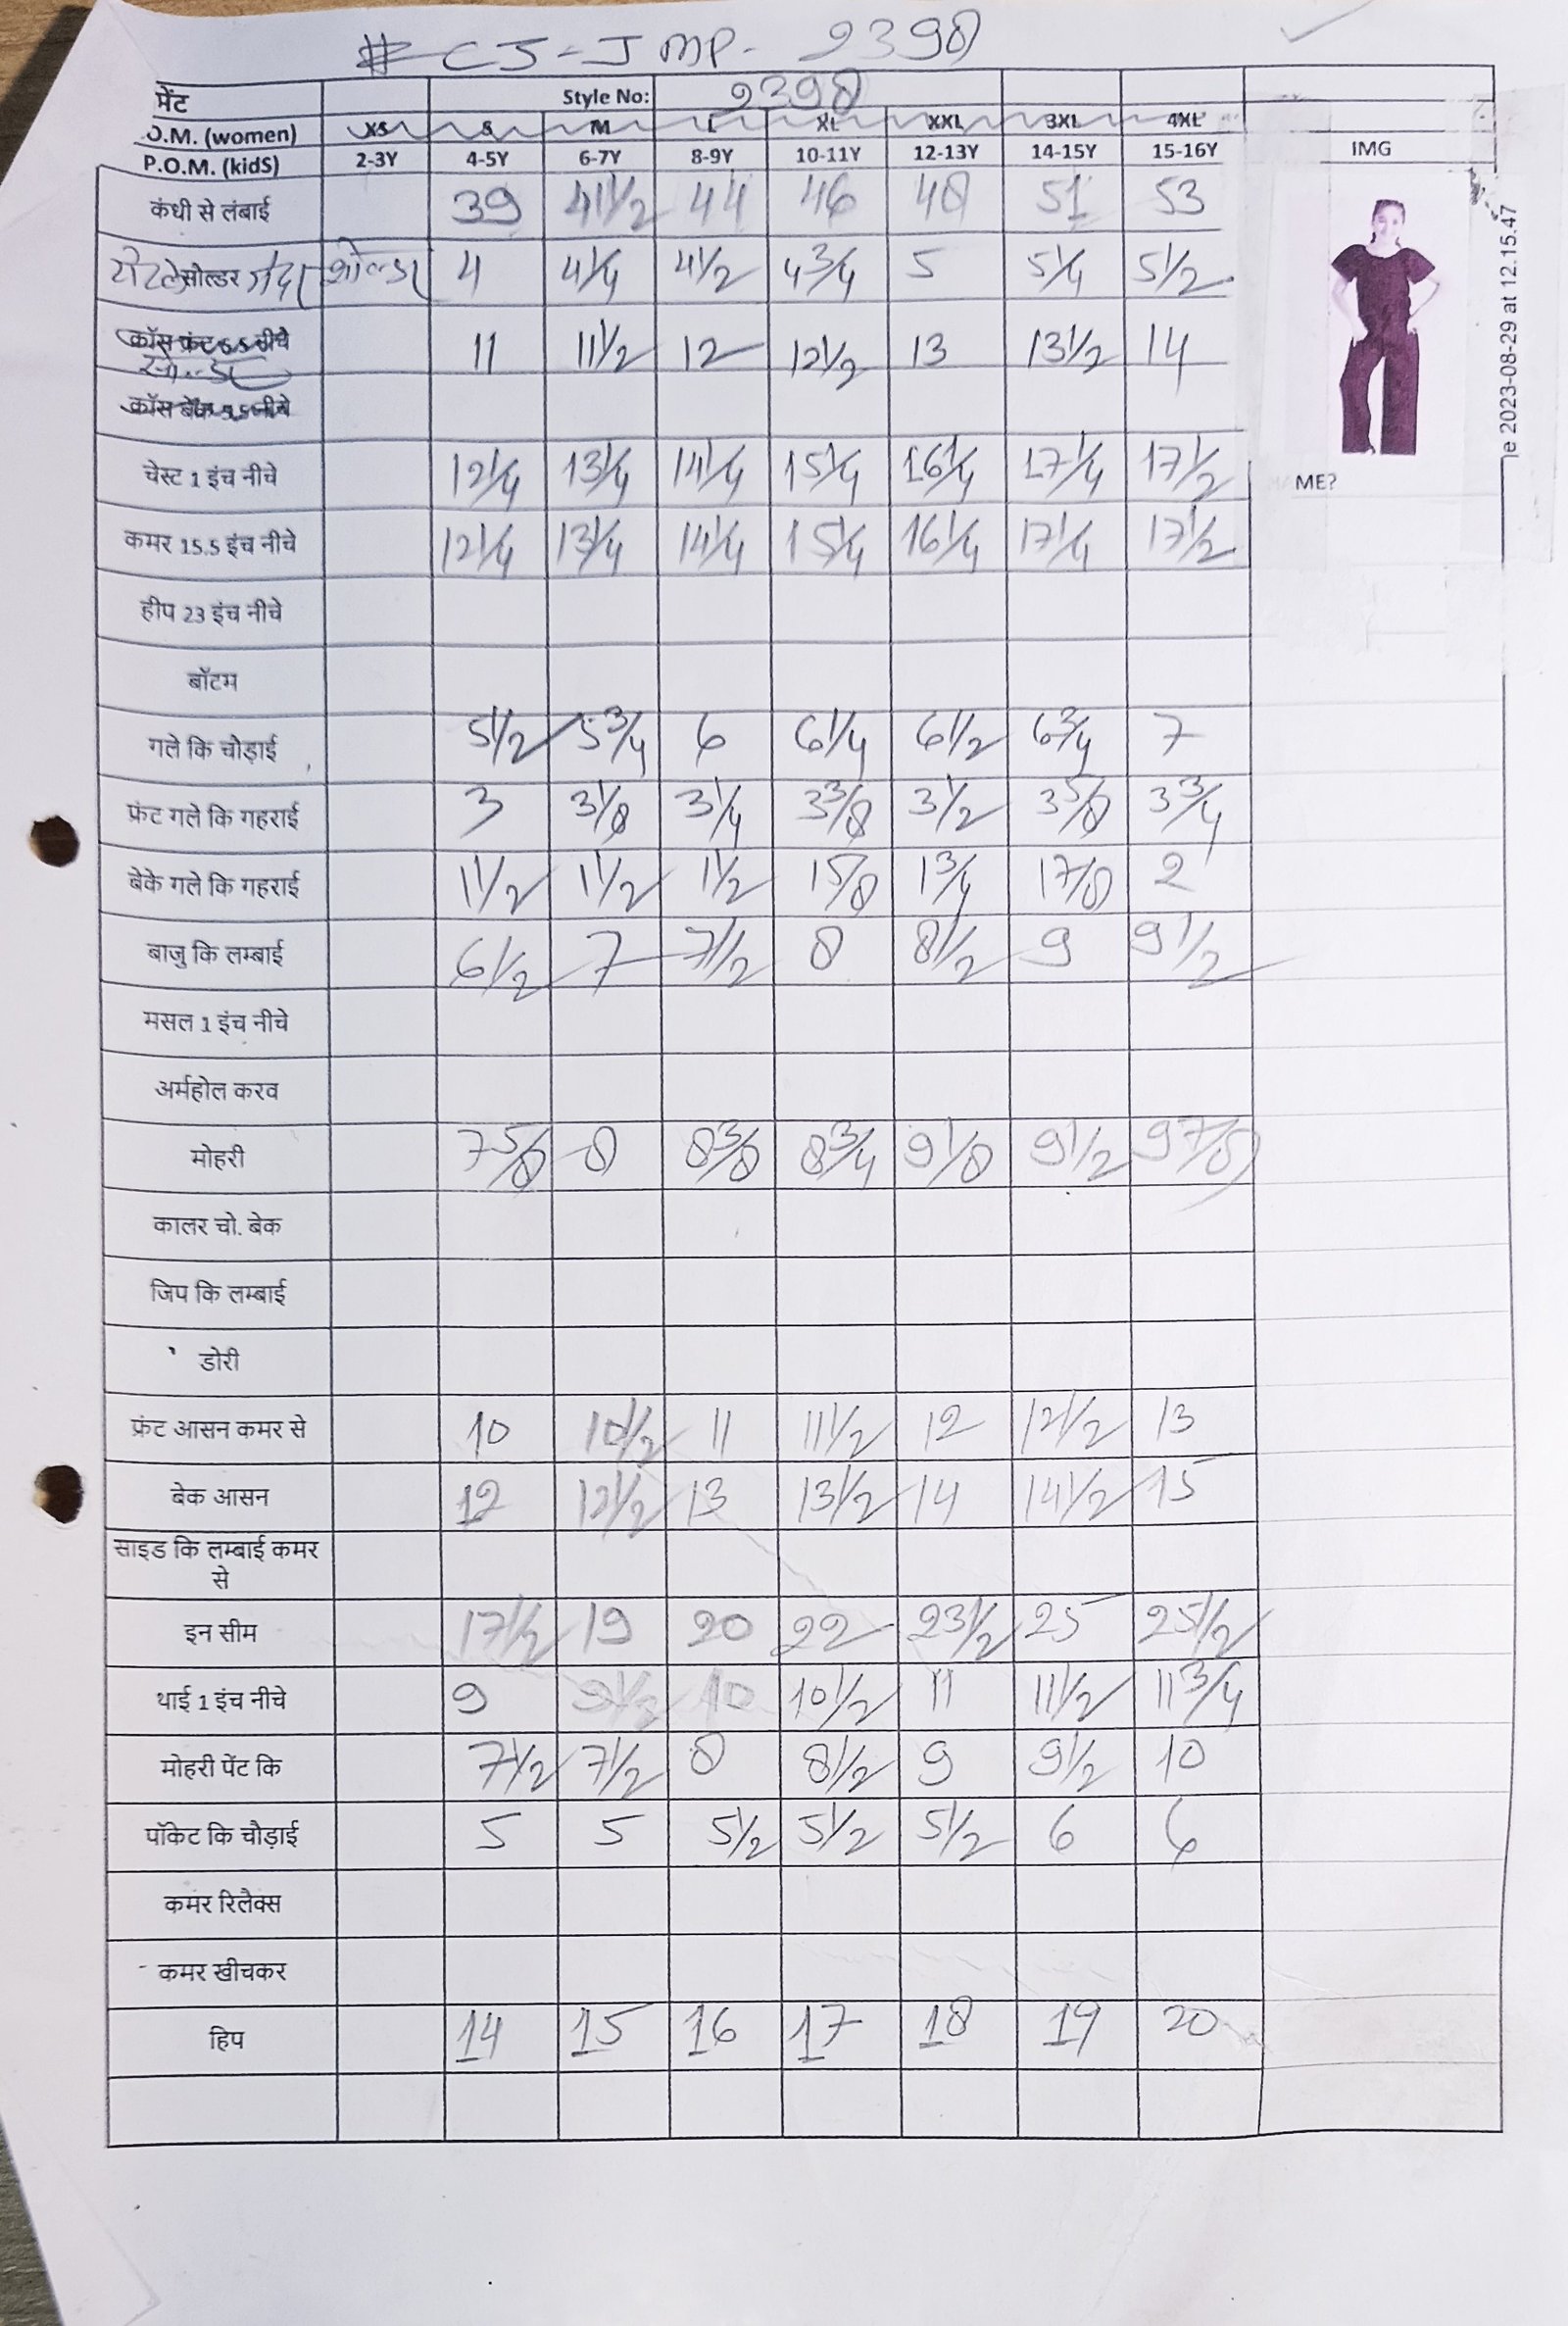 # CJ-JMP-2398
मेंट Style No: 2398
O.M. (women) XS S M L XL XXL 3XL 4XL
P.O.M. (kidS) 2-3Y 4-5Y 6-7Y 8-9Y 10-11Y 12-13Y 14-15Y 15-16Y IMG
कंधी से लंबाई 39 41 1/2 44 46 48 51 53
सोल्डर शोल्डर 4 4 1/4 4 1/2 4 3/4 5 5 1/4 5 1/2
क्रॉस फ्रंट 5.5 नीचे 11 11 1/2 12 12 1/2 13 13 1/2 14
क्रॉस बेक 5.5 नीचे
चेस्ट 1 इंच नीचे 12 1/4 13 1/4 14 1/4 15 1/4 16 1/4 17 1/4 17 1/2
ME?
कमर 15.5 इंच नीचे 12 1/4 13 1/4 14 1/4 15 1/4 16 1/4 17 1/4 17 1/2
हीप 23 इंच नीचे
बॉटम
गले कि चौड़ाई 5 1/2 5 3/4 6 6 1/4 6 1/2 6 3/4 7
फ्रंट गले कि गहराई 3 3 1/8 3 1/4 3 3/8 3 1/2 3 5/8 3 3/4
बेके गले कि गहराई 1 1/2 1 1/2 1 1/2 1 5/8 1 3/4 1 7/8 2
बाजु कि लम्बाई 6 1/2 7 7 1/2 8 8 1/2 9 9 1/2
मसल 1 इंच नीचे
अर्महोल करव
मोहरी 7 5/8 8 8 3/8 8 3/4 9 1/8 9 1/2 9 7/8
कालर चो. बेक
जिप कि लम्बाई
डोरी
फ्रंट आसन कमर से 10 10 1/2 11 11 1/2 12 12 1/2 13
बेक आसन 12 12 1/2 13 13 1/2 14 14 1/2 15
साइड कि लम्बाई कमर
से
इन सीम 17 1/2 19 20 22 23 1/2 25 25 1/2
थाई 1 इंच नीचे 9 9 1/2 10 10 1/2 11 11 1/2 11 3/4
मोहरी पेंट कि 7 1/2 7 1/2 8 8 1/2 9 9 1/2 10
पॉकेट कि चौड़ाई 5 5 5 1/2 5 1/2 5 1/2 6 6
कमर रिलैक्स
कमर खीचकर
हिप 14 15 16 17 18 19 20
e 2023-08-29 at 12.15.47